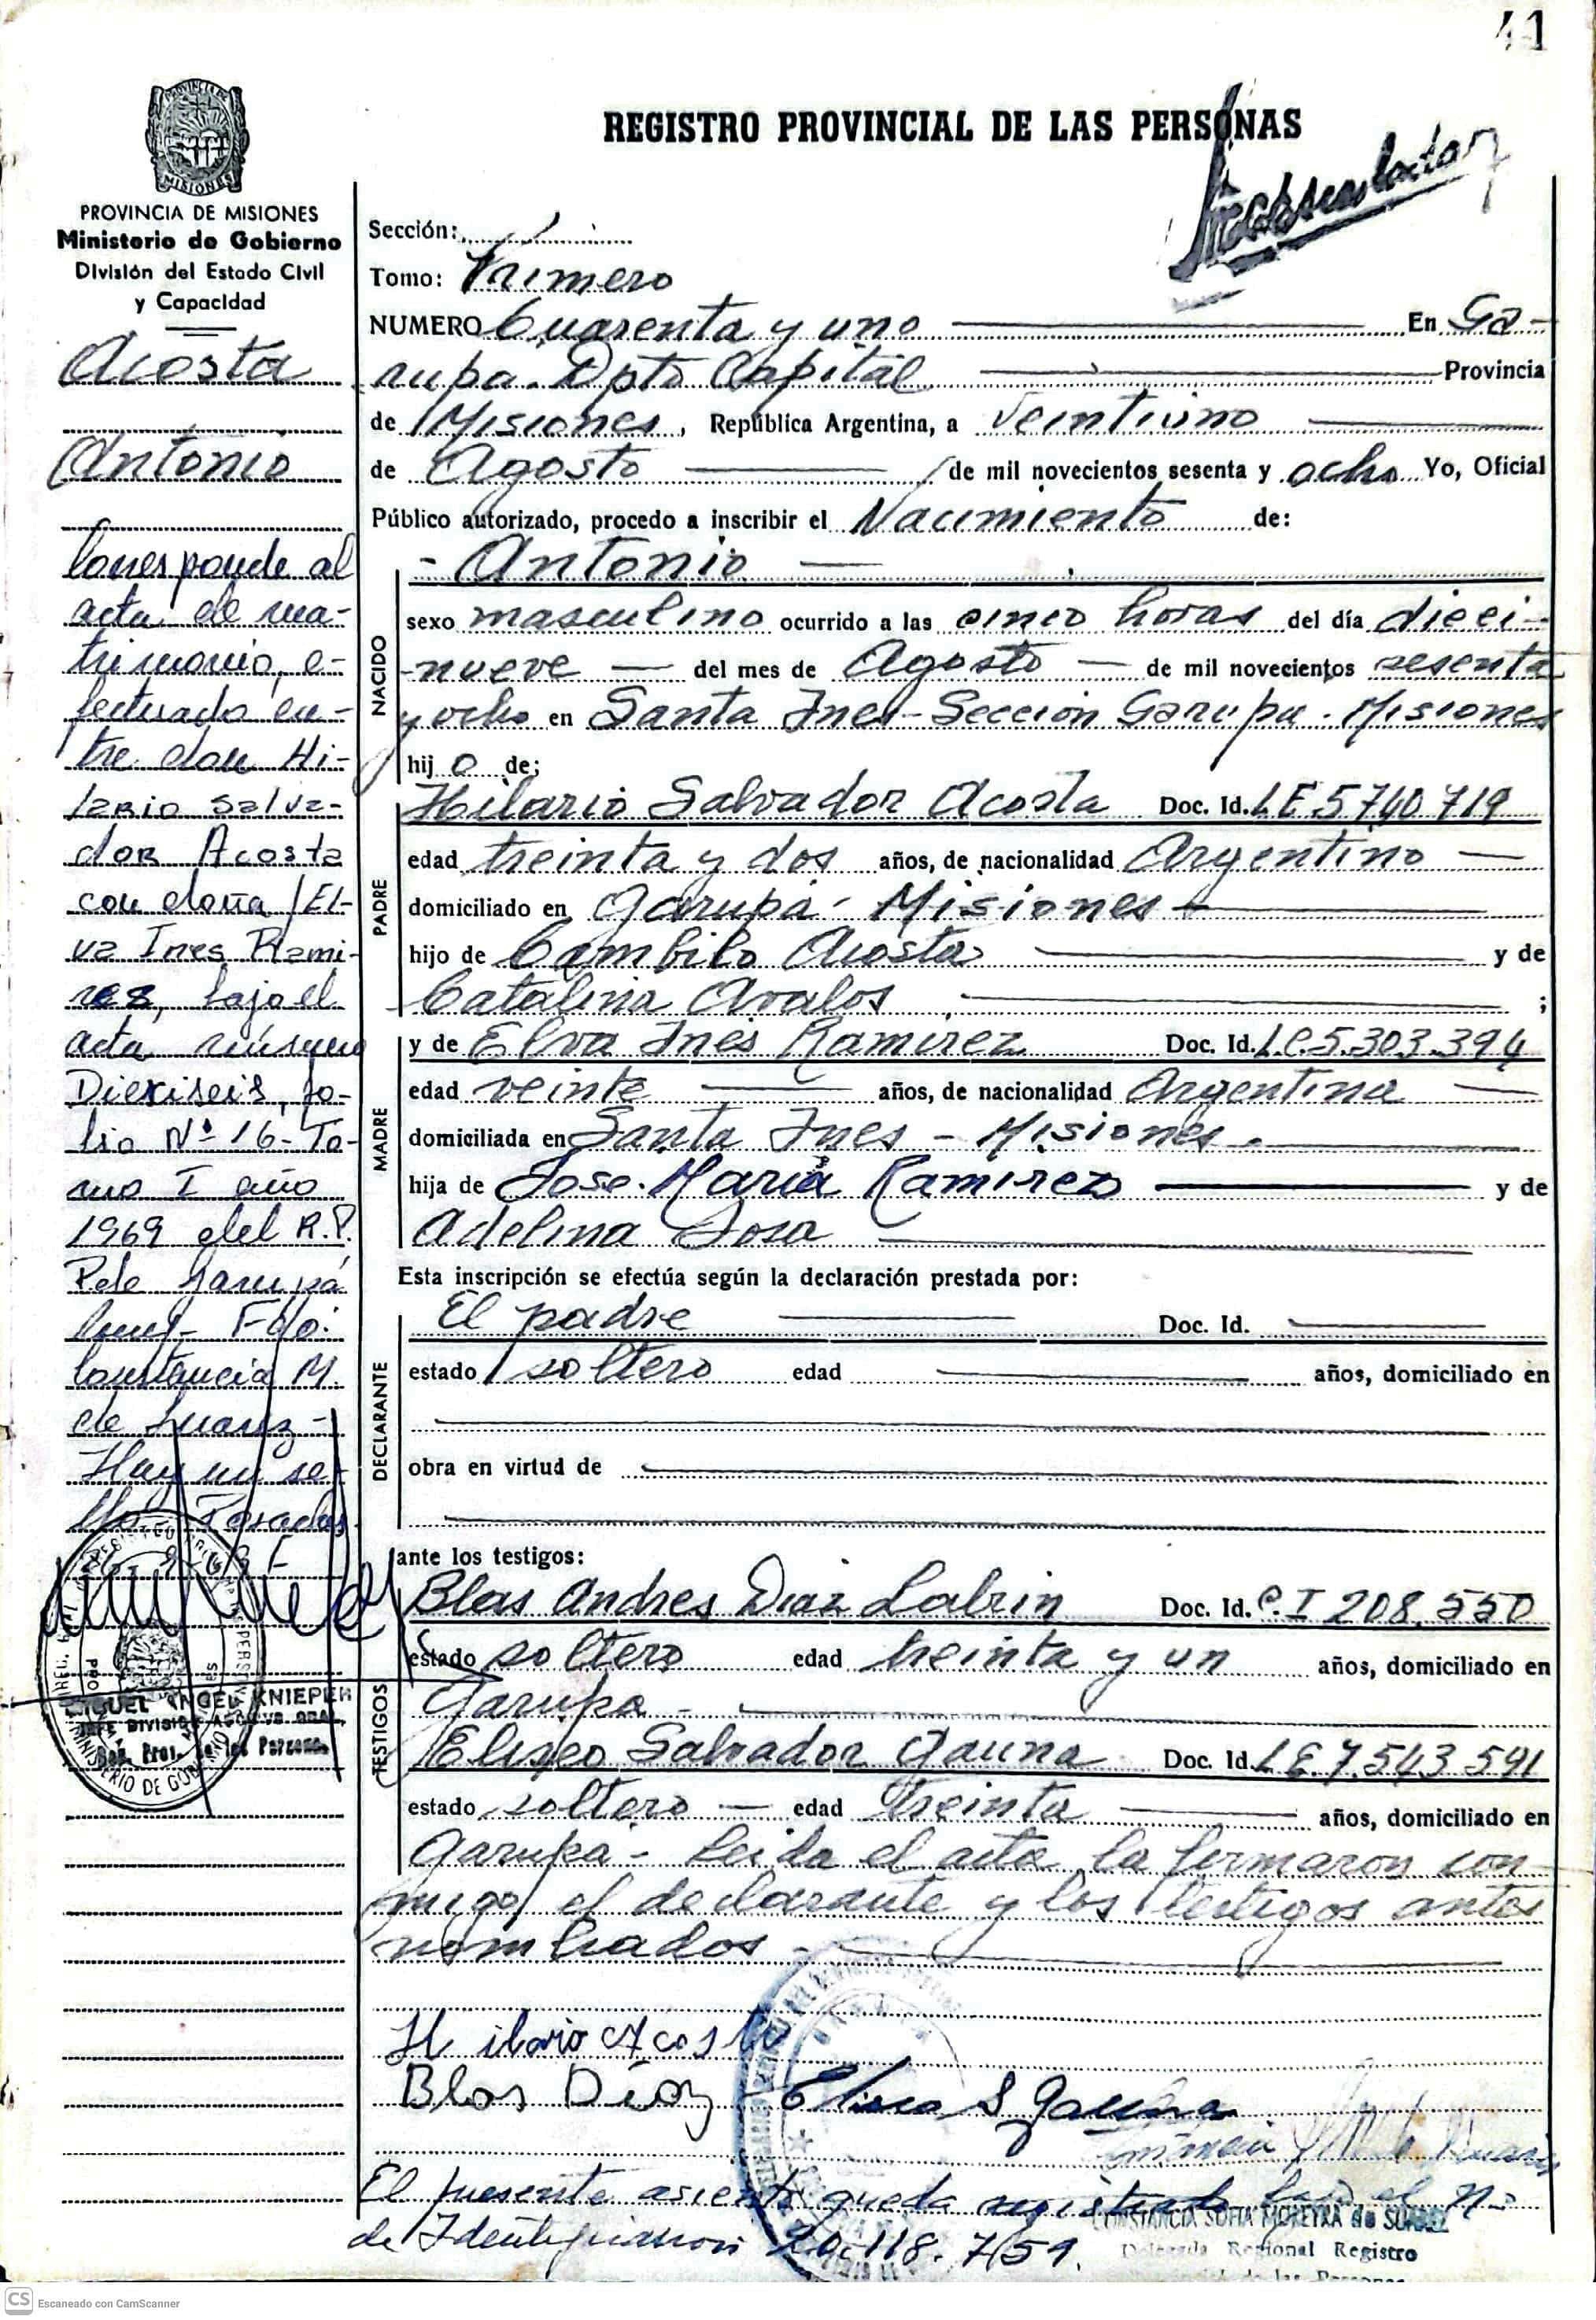 41
REGISTRO PROVINCIAL DE LAS PERSONAS
PROVINCIA DE
MISIONES
PROVINCIA DE MISIONES
Ministerio de Gobierno
División del Estado Civil
y Capacidad
Acosta
Antonio
Corresponde al
acta de ma-
trimonio, e-
fectuado en-
tre don Hi-
lario Salva-
dor Acosta
con doña El-
va Ines Rami-
rez, bajo el
acta número
Dieciseis, fo-
lio Nº 16- To-
mo I año
1969 del R.P.
Pde Garupá
Fdo:
Constancia M.
de Suarez-
Hay un se-
llo- Posadas
MIGUEL ANGEL KNIEPER
JEFE DIVISION ARCHIVO GRAL.
Reg. Prov. de las Personas
MINISTERIO DE GOBIERNO
Sección:
Tomo: Primero
NUMERO Cuarenta y uno En Ga-
rupa. Dpto Capital Provincia
de Misiones, República Argentina, a veintiuno
de Agosto de mil novecientos sesenta y ocho Yo, Oficial
Público autorizado, procedo a inscribir el Nacimiento de:
- Antonio —
NACIDO
sexo masculino ocurrido a las cinco horas del día dieci-
nueve — del mes de Agosto — de mil novecientos sesenta
y ocho en Santa Ines- Sección Garupa. Misiones
hijo de;
PADRE
Hilario Salvador Acosta Doc. Id. L E 5740719
edad treinta y dos años, de nacionalidad Argentino —
domiciliado en Garupá- Misiones
hijo de Cambilo Acosta y de
Catalina Avalos ;
MADRE
y de Elva Ines Ramirez Doc. Id. L.C.5.303.394
edad veinte años, de nacionalidad Argentina —
domiciliada en Santa Ines - Misiones.
hija de Jose. Maria Ramirez y de
Adelina Sosa
Esta inscripción se efectúa según la declaración prestada por:
DECLARANTE
El padre Doc. Id.
estado soltero edad años, domiciliado en
obra en virtud de
ante los testigos:
TESTIGOS
Blas Andres Diaz Labrin Doc. Id. C.I 208.550
estado soltero edad treinta y un años, domiciliado en
Garupa-
Eliseo Salvador Gauna Doc. Id. L E.7.543.591
estado soltero — edad treinta años, domiciliado en
Garupa- Leida el acta la firmaron con-
migo el declarante y los testigos antes
nombrados
Hilario Acosta
Blas Diaz Eliseo S Gauna
El presente asiento queda registrado bajo el Nº
de Identificacion 20.118.759.
CONSTANCIA SOFIA MOREYRA de SUAREZ
Delegada Regional Registro
de las Personas
CS Escaneado con CamScanner